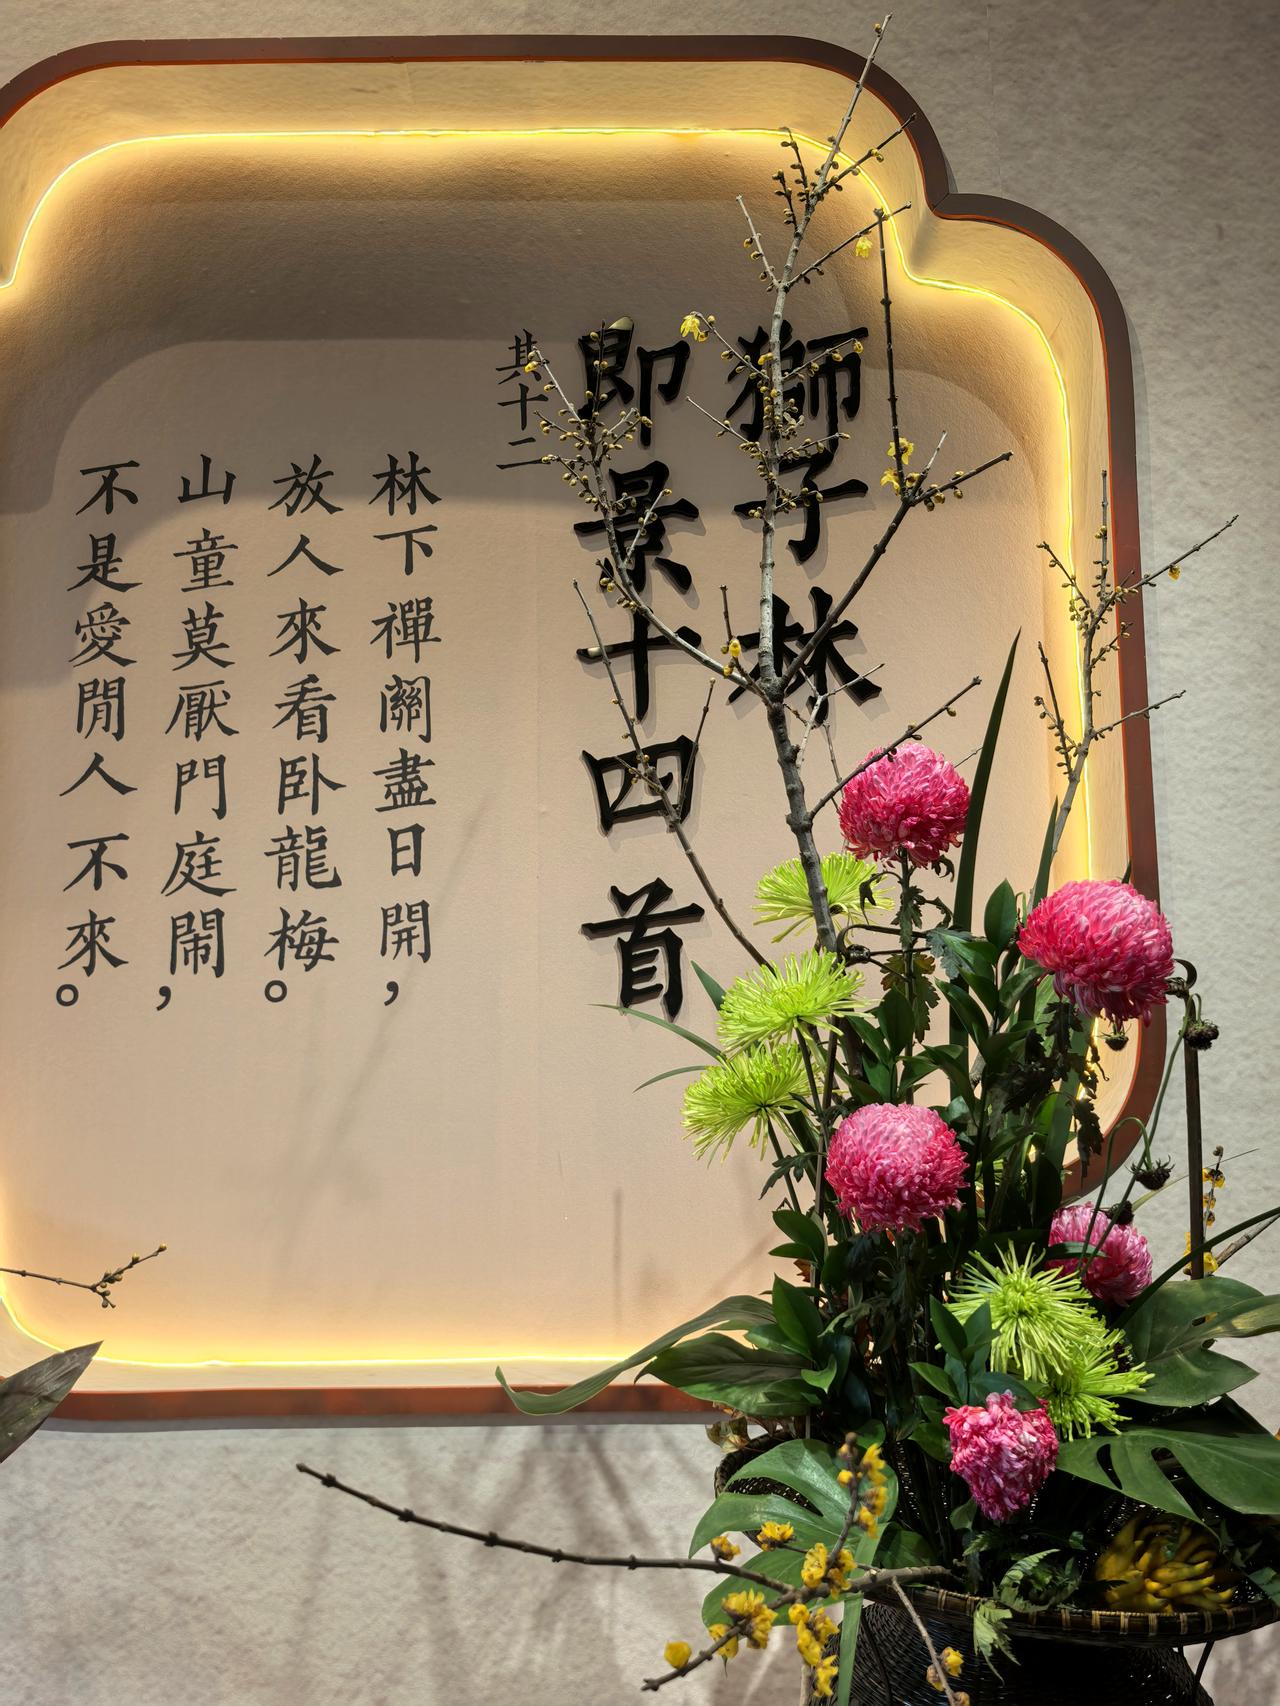 獅子林
即景十四首
其十二
林下禪關盡日開，
放人來看卧龍梅。
山童莫厭門庭鬧，
不是愛閒人不來。